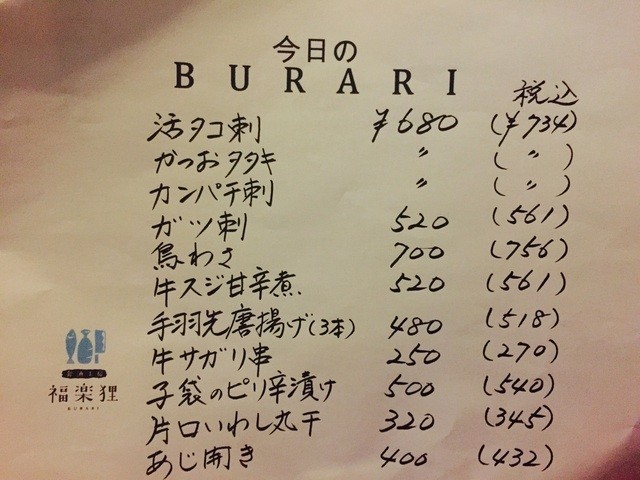 今日の
BURARI
税込
活タコ刺 ¥680 (¥734)
かつおタタキ 〃 (〃)
カンパチ刺 〃 (〃)
ガツ刺 520 (561)
鳥わさ 700 (756)
牛スジ甘辛煮 520 (561)
手羽先唐揚げ(3本) 480 (518)
牛サガリ串 250 (270)
子袋のピリ辛漬け 500 (540)
片口いわし丸干 320 (345)
あじ開き 400 (432)
福楽狸
BURARI